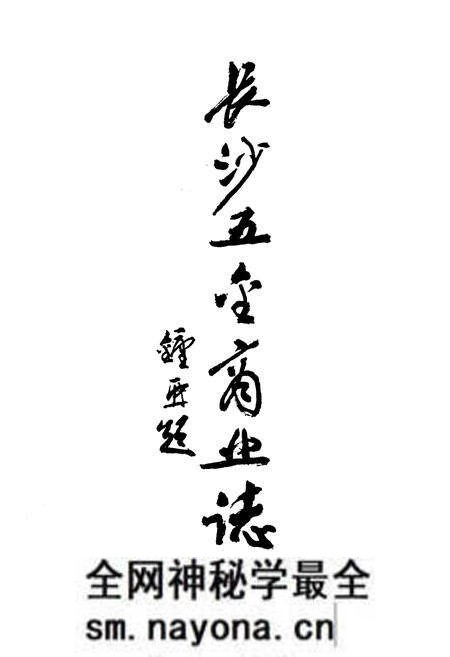 長沙五金商业誌
鍾亚题
全网神秘学最全
sm.nayona.cn